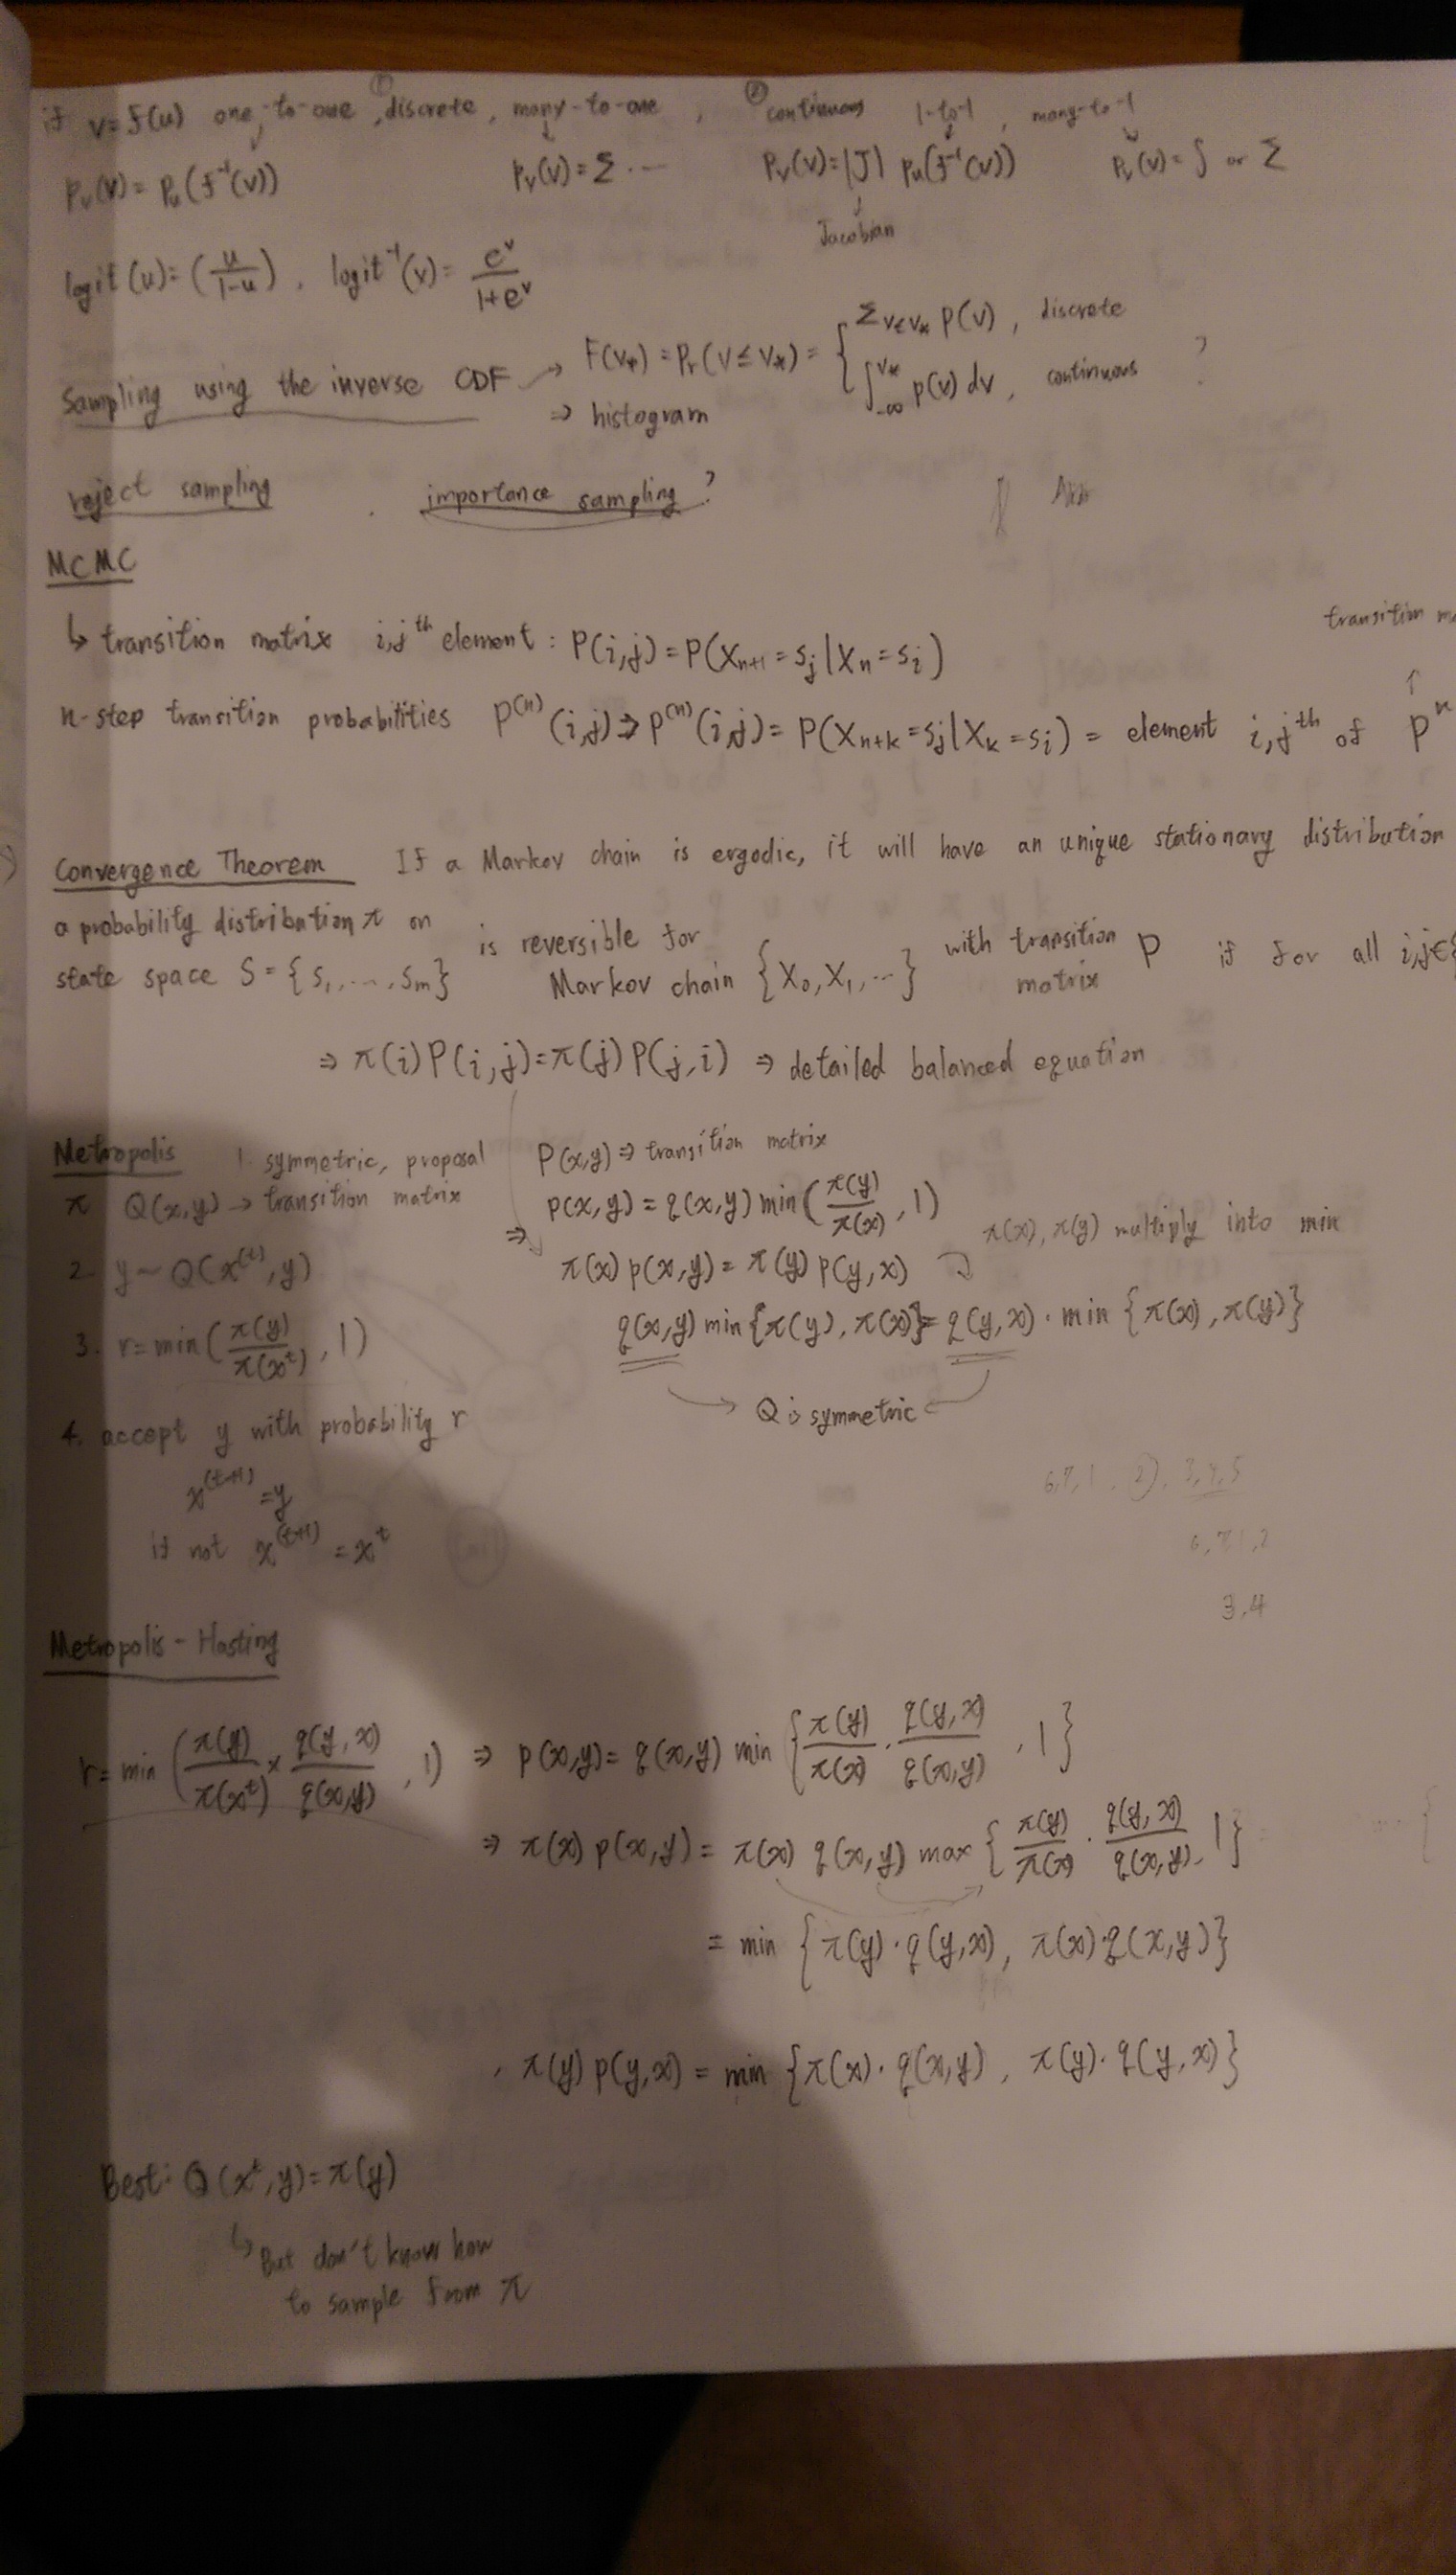 if v=f(u) one-to-one ① ,discrete, many-to-one , ② continuous 1-to-1 , many-to-1
p_v(v) = p_u(f^{-1}(v)) p_v(v)=Σ... p_v(v)=|J| p_u(f^{-1}(v)) p_v(v)=∫ or Σ
Jacobian
logit(u)=(u/(1-u)), logit^{-1}(v)= e^v/(1+e^v)
Sampling using the inverse CDF → F(v*) = Pr(v≤v*) = { Σ_{v≤v*} p(v), discrete
∫_{-∞}^{v*} p(v) dv, continuous ?
⇒ histogram
reject sampling . importance sampling ?
MCMC
↳ transition matrix i,j^{th} element : P(i,j)=P(X_{n+1}=s_j|X_n=s_i)
transition
n-step transition probabilities P^{(n)}(i,j)⇒P^{(n)}(i,j)= P(X_{n+k}=s_j|X_k=s_i) = element i,j^{th} of P^n
Convergence Theorem If a Markov chain is ergodic, it will have an unique stationary distribution
a probability distribution π on
state space S={s_1,...,s_m} is reversible for Markov chain {X_0,X_1,...} with transition matrix P if for all i,j∈
⇒ π(i)P(i,j)=π(j)P(j,i) ⇒ detailed balanced equation
Metropolis 1. symmetric, proposal
π Q(x,y) → transition matrix
2. y~Q(x^{(t)},y)
3. r=min(π(y)/π(x^t), 1)
4. accept y with probability r
x^{(t+1)} =y
if not x^{(t+1)} =x^t
P(x,y) ⇒ transition matrix
p(x,y) = q(x,y) min(π(y)/π(x), 1)
⇒ π(x)p(x,y)= π(y)p(y,x) π(x),π(y) multiply into min
q(x,y) min{π(y), π(x)}= q(y,x)·min{π(x),π(y)}
Q is symmetric
6,7,1,2),3,4,5
6,7,1,2
3,4
Metropolis-Hasting
r=min(π(y)/π(x^t) × q(y,x)/q(x,y), 1) ⇒ p(x,y)= q(x,y) min{π(y)/π(x) · q(y,x)/q(x,y), 1}
⇒ π(x)p(x,y)= π(x) q(x,y) max{π(y)/π(x) · q(y,x)/q(x,y), 1}
= min{π(y)·q(y,x), π(x)·q(x,y)}
, π(y)p(y,x) = min{π(x)·q(x,y), π(y)·q(y,x)}
Best: Q(x^t,y)=π(y)
↳ But don't know how
to sample from π